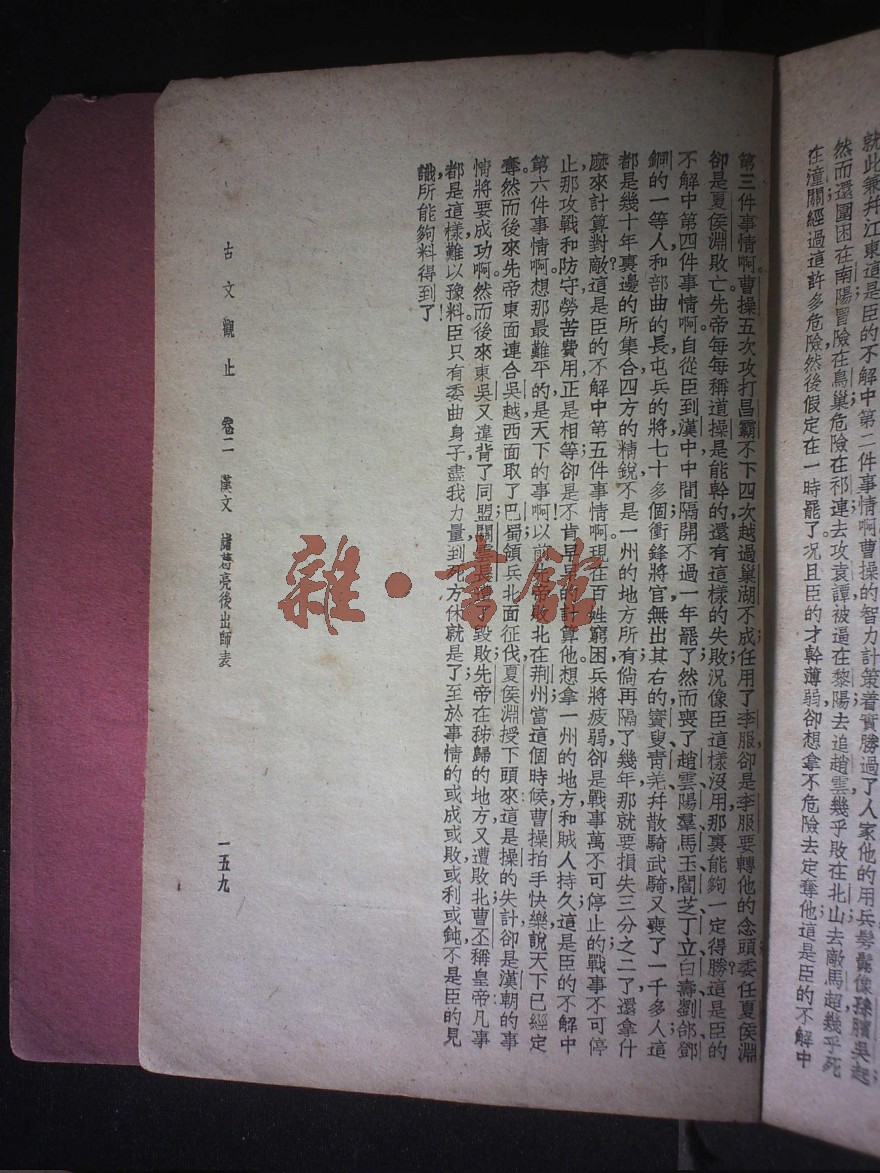 就此兼幷江東這是臣的不解中第二件事情啊曹操的智力計策着實勝過了人家他的用兵髣髴像孫臏吳起
然而還圍困在南陽冒險在烏巢危險在祁連去攻袁譚被逼在黎陽去追趙雲幾乎敗在北山去敵馬超幾乎死
在潼關經過這許多危險然後假定在一時罷了况且臣的才幹薄弱卻想拿不危險去定奪他這是臣的不解中
第三件事情啊。曹操五次攻打昌霸不下，四次越過巢湖不成；任用了李服，卻是李服要轉他的念頭；委任夏侯淵，
卻是夏侯淵敗亡。先帝每每稱道操是能幹的，還有這樣的失敗；況像臣這樣沒用，那裏能夠一定得勝？這是臣的
不解中第四件事情啊。自從臣到漢中，中間隔開不過一年罷了；然而喪了趙雲、陽羣、馬玉、閻芝、丁立、白壽、劉郃、鄧
銅的一等人，和部曲的長屯兵的將七十多個，衝鋒將官無出其右的；竇叟靑羌幷散騎武騎又喪了一千多人；這
都是幾十年裏邊的所集合四方的精銳，不是一州的地方所有；倘再隔了幾年，那就要損失三分之二了，還拿什
麽來計算對敵？這是臣的不解中第五件事情啊。現在百姓窮困，兵將疲弱，卻是戰事萬不可停止的；戰事不可停
止，那攻戰和防守勞苦費用正是相等，卻是不肯早早的計算他，想拿一州的地方和賊人持久；這是臣的不解中
第六件事情啊。想那最難平的，是天下的事啊！以前先帝敗北在荆州，當這個時候，曹操拍手快樂，說天下已經定
奪。然而後來先帝東面連合吳越，西面取了巴蜀，領兵北面征伐，夏侯淵授下頭來；這是操的失計，卻是漢朝的事
情將要成功啊。然而後來東吳又違背了同盟，關雲長他了毀敗，先帝在秭歸的地方又遭敗北，曹丕稱皇帝；凡事
都是這樣，難以豫料。臣只有委曲身子，盡我力量，到死方休就是了；至於事情的或成或敗，或利或鈍，不是臣的見
識所能夠料得到了！
古文觀止 卷二 漢文 諸葛亮後出師表 一五九
雜·書館